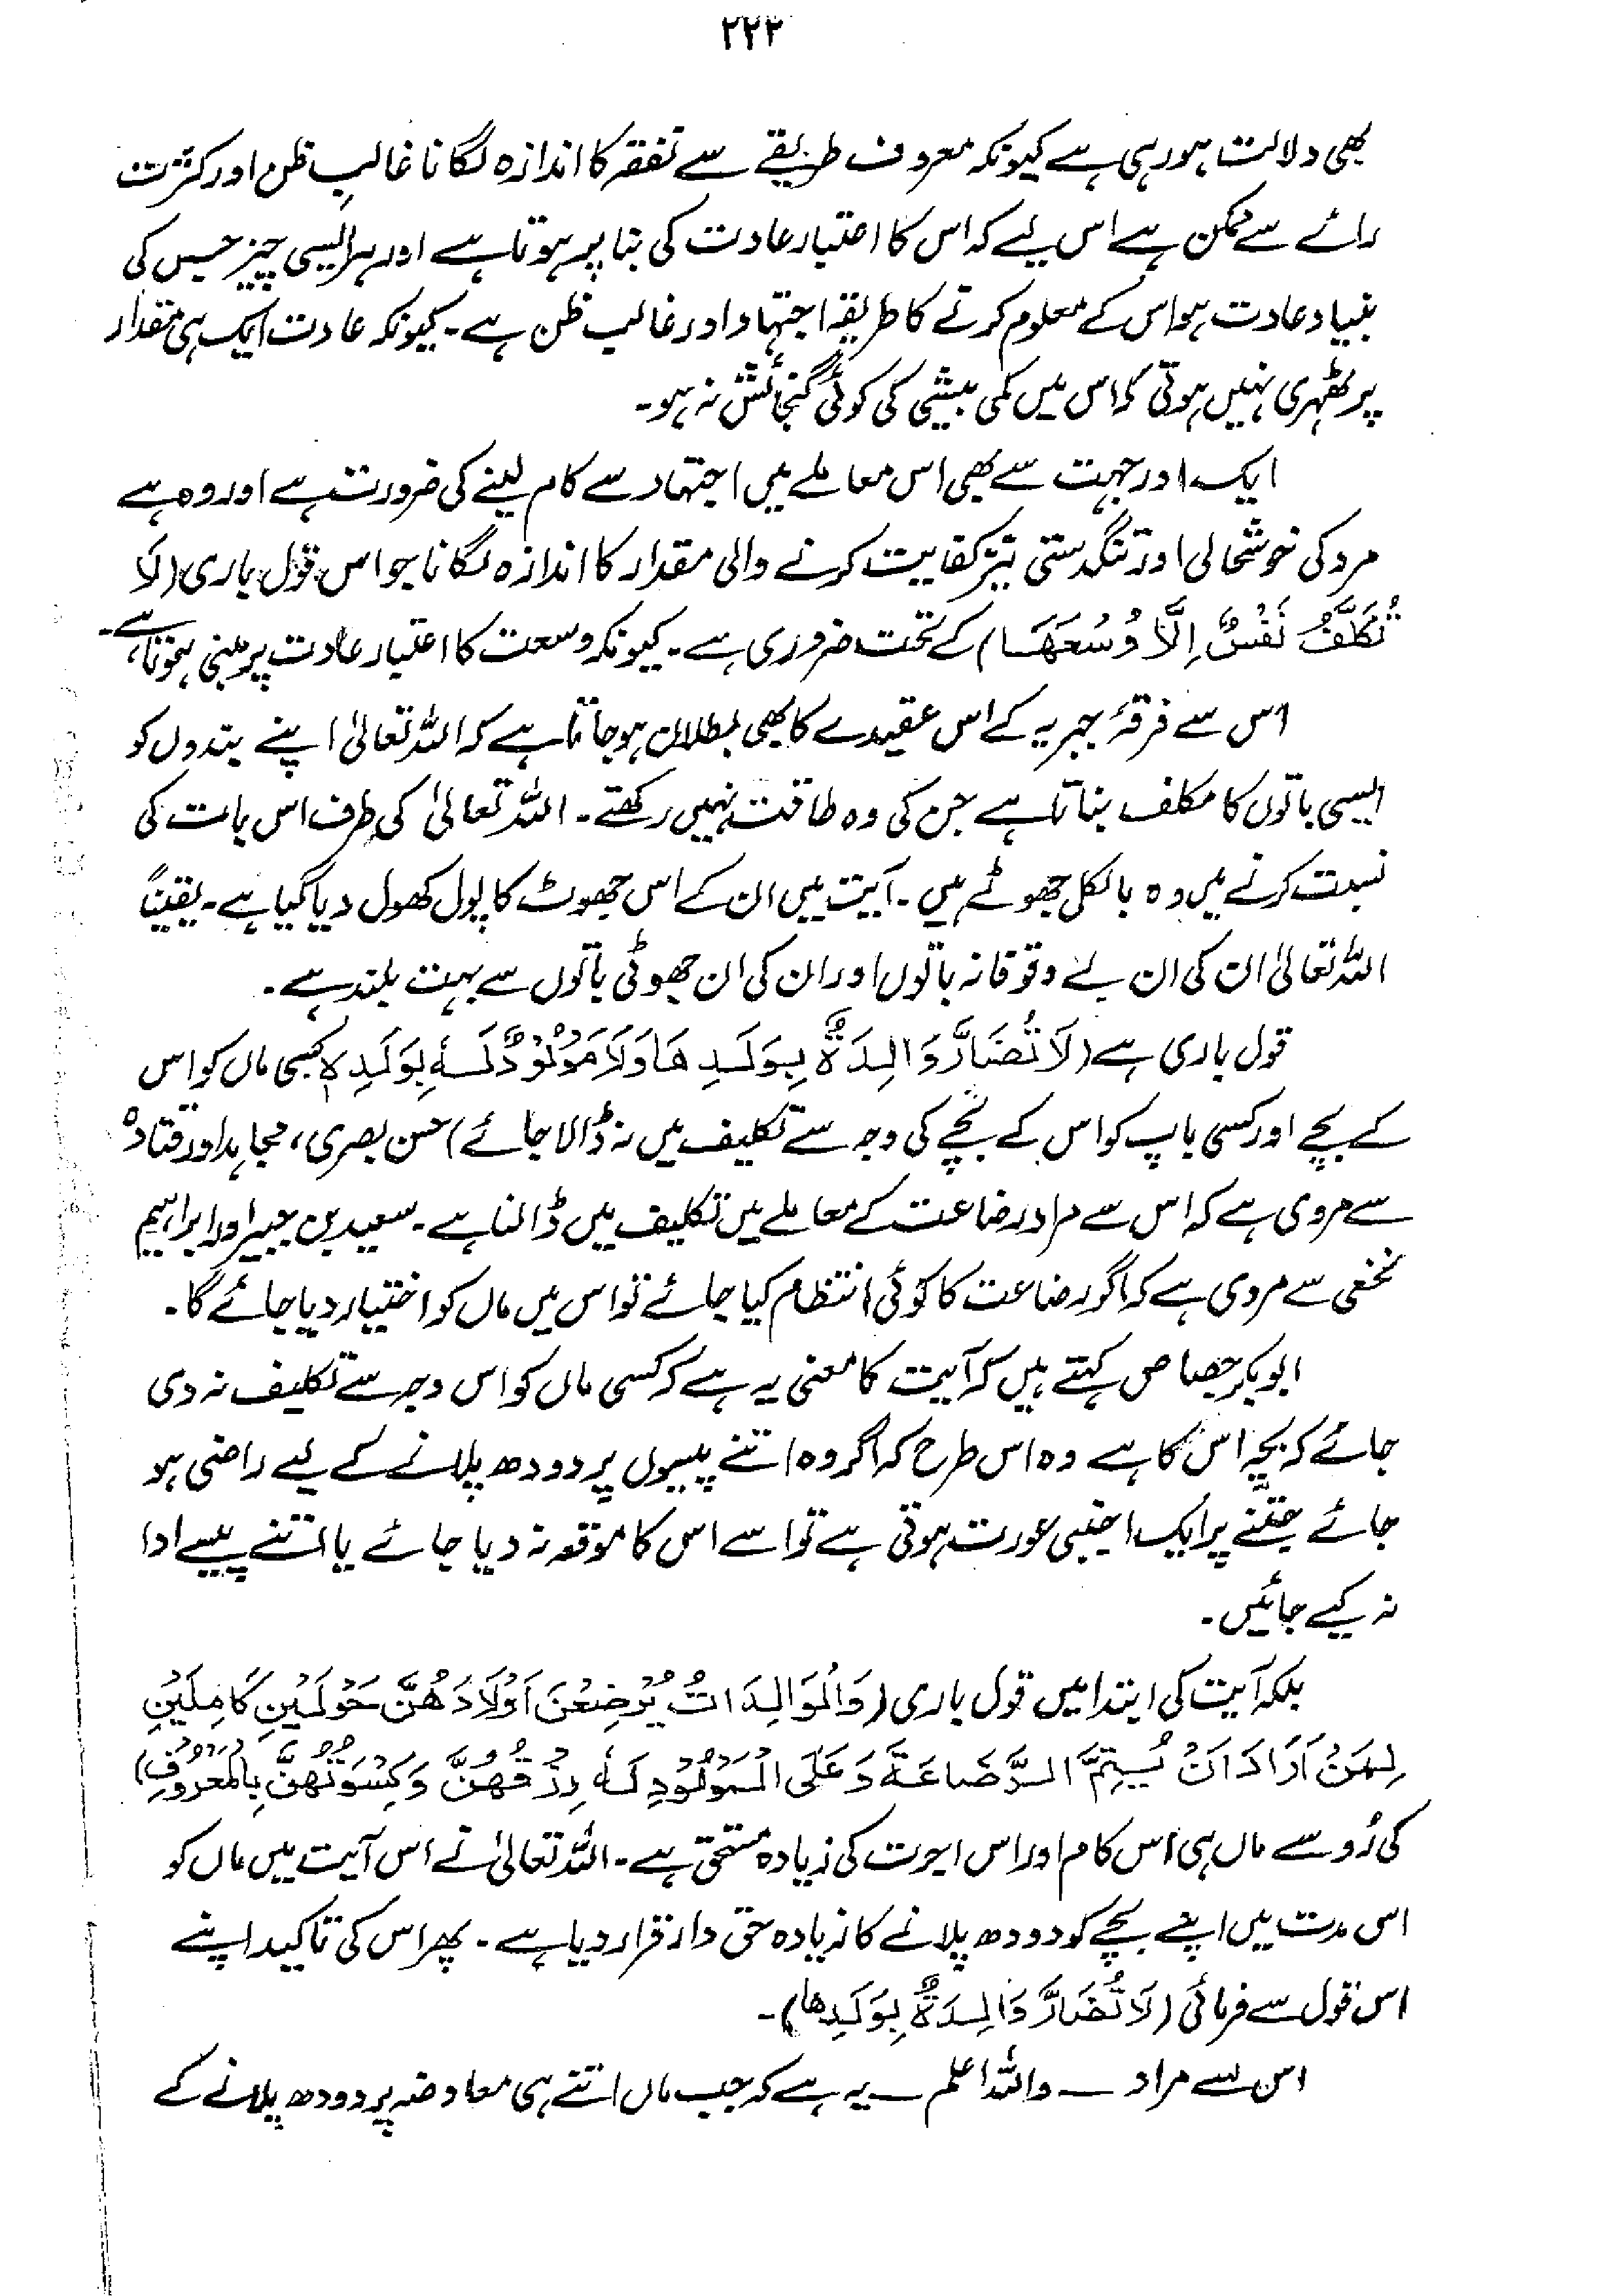 ۲۲۳
بھی دلالت ہو رہی ہے کیونکہ معروف طریقے سے نفقہ کا اندازہ لگانا غالب ظن اور کثرت
رائے سے ممکن ہے اس لیے کہ اس کا اعتبار عادت کی بنا پر ہوتا ہے اور ہر ایسی چیز جس کی
بنیاد عادت ہو اس کے معلوم کرنے کا طریقہ اجتہاد اور غالب ظن ہے۔ کیونکہ عادت ایک ہی مقدار
پر ٹھہری نہیں ہوتی کہ اس میں کمی بیشی کی کوئی گنجائش نہ ہو۔
ایک اور جہت سے بھی اس معاملے میں اجتہاد سے کام لینے کی ضرورت ہے اور وہ ہے
مرد کی خوشحالی اور تنگدستی نیز کفایت کرنے والی مقدار کا اندازہ لگانا جو اس قول باری (لَا
تُکَلَّفُ نَفْسٌ اِلَّا وُسْعَهَا) کے تحت ضروری ہے۔ کیونکہ وسعت کا اعتبار عادت پر مبنی ہوتا ہے۔
اس سے فرقۂ جبریہ کے اس عقیدے کا بھی بطلان ہو جاتا ہے کہ اللہ تعالیٰ اپنے بندوں کو
ایسی باتوں کا مکلف بناتا ہے جن کی وہ طاقت نہیں رکھتے۔ اللہ تعالیٰ کی طرف اس بات کی
نسبت کرنے میں وہ بالکل جھوٹے ہیں۔ آیت میں ان کے اس جھوٹ کا پول کھول دیا گیا ہے۔ یقیناً
اللہ تعالیٰ ان کی ان بے وقوفانہ باتوں اور ان کی ان جھوٹی باتوں سے بہت بلند ہے۔
قول باری ہے (لَا تُضَارَّ وَالِدَةٌ بِوَلَدِهَا وَلَا مَوْلُوْدٌ لَّهٗ بِوَلَدِهٖ کسی ماں کو اس
کے بچے اور کسی باپ کو اس کے بچے کی وجہ سے تکلیف میں نہ ڈالا جائے) حسن بصری، مجاہد اور قتادہ
سے مروی ہے کہ اس سے مراد رضاعت کے معاملے میں تکلیف میں ڈالنا ہے۔ سعید بن جبیر اور ابراہیم
نخعی سے مروی ہے کہ اگر رضاعت کا کوئی انتظام کیا جائے تو اس میں ماں کو اختیار دیا جائے گا۔
ابوبکر جصاص کہتے ہیں کہ آیت کا معنی یہ ہے کہ کسی ماں کو اس وجہ سے تکلیف نہ دی
جائے کہ بچہ اس کا ہے وہ اس طرح کہ اگر وہ اتنے پیسوں پر دودھ پلانے کے لیے راضی ہو
جائے جتنے پر ایک اجنبی عورت ہوتی ہے تو اسے اس کا موقعہ نہ دیا جائے یا اتنے پیسے ادا
نہ کیے جائیں۔
بلکہ آیت کی ابتدا میں قول باری (وَالْوَالِدَاتُ یُرْضِعْنَ اَوْلَادَهُنَّ حَوْلَیْنِ کَامِلَیْنِ
لِمَنْ اَرَادَ اَنْ یُّتِمَّ الرَّضَاعَةَ وَعَلَی الْمَوْلُوْدِ لَهٗ رِزْقُهُنَّ وَکِسْوَتُهُنَّ بِالْمَعْرُوْفِ)
کی رُو سے ماں ہی اس کام اور اس اجرت کی زیادہ مستحق ہے۔ اللہ تعالیٰ نے اس آیت میں ماں کو
اس مدت میں اپنے بچے کو دودھ پلانے کا زیادہ حق دار قرار دیا ہے۔ پھر اس کی تاکید اپنے
اس قول سے فرمائی (لَا تُضَارَّ وَالِدَةٌ بِوَلَدِهَا)۔
اس سے مراد — واللہ اعلم — یہ ہے کہ جب ماں اتنے ہی معاوضہ پر دودھ پلانے کے